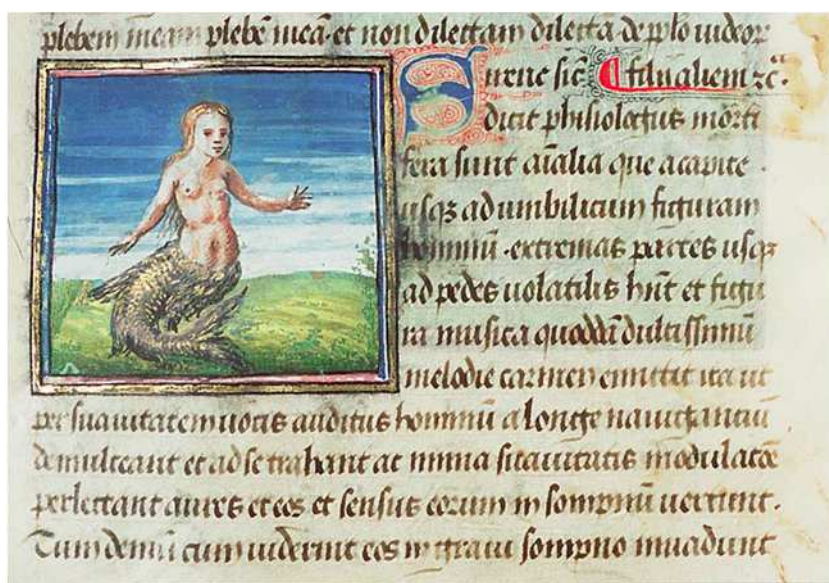 plebem meam plebē meā · et non dilectam dilecta · de q̄lo uideor
Sirene sic̄ ¶ filij aliem ⁊c̄ᵃ
dicit phisiologus morti
fera sunt aīalia que a capite ·
usqꝫ ad umbilicum figuram
hominū · extremas partes usqꝫ
ad pedes uolatilis hn̄t et figu
ra musica quoddā dulcissimū
melodie carmen emittit ita ut
per suauitatem uocis auditus hominū a longe nauigantiū
demulceant et ad se trahant ac nimia suauitatis modulatōe
perlectant aures et eos et sensus eorum in sompnū uertunt ·
Tum demū cum uiderint eos in graui sompno inuadunt